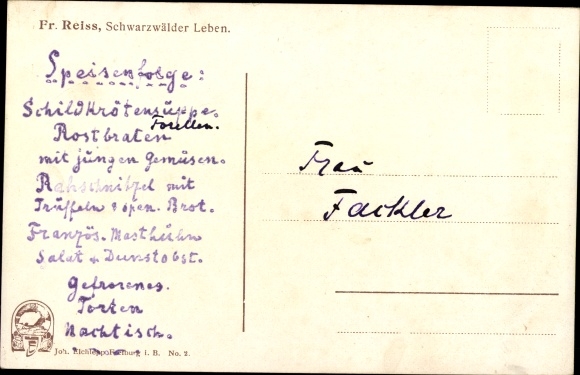 Fr. Reiss, Schwarzwälder Leben.
Speisenfolge:
Schildkrötensuppe.
Forellen.
Rostbraten
mit jungen Gemüsen.
Rahschnitzel mit
Trüffeln Brot.
Französ. Masthuhn
Salat u Dunstobst.
Gefrorenes.
Torten
Nachtisch.
Frau
Fackler
Joh. Elchlepp, Freiburg i. B. No. 2.